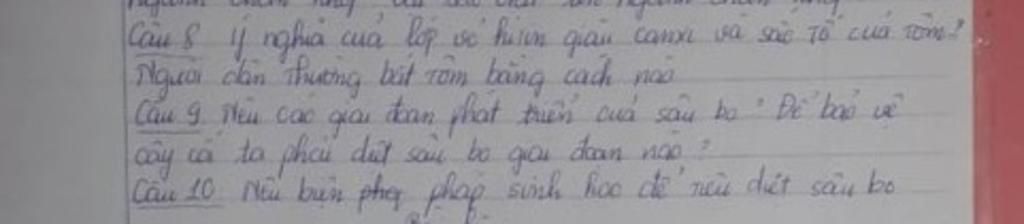 Câu 8 ý nghĩa của lớp vỏ kitin giàu canxi và sắc tố của tôm?
Người dân thường bắt tôm bằng cách nào
Câu 9. Nêu các giai đoạn phát triển của sâu bọ? Để bảo vệ
cây cả ta phải diệt sâu bọ giai đoạn nào?
Câu 10 Nêu biện pháp sinh học để tiêu diệt sâu bọ